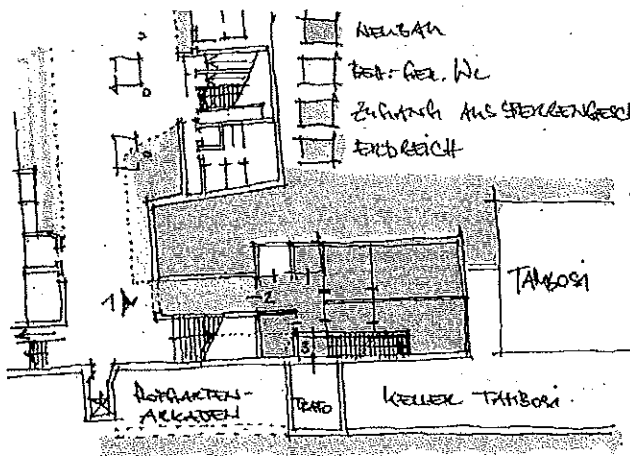 NEUBAU
BEH.-GER. WC
ZUGANG AUS SPERRENGESCH
ERDREICH
TAMBOSI
1
2
3
HOFGARTEN-
ARKADEN
TRAFO
KELLER TAMBOSI